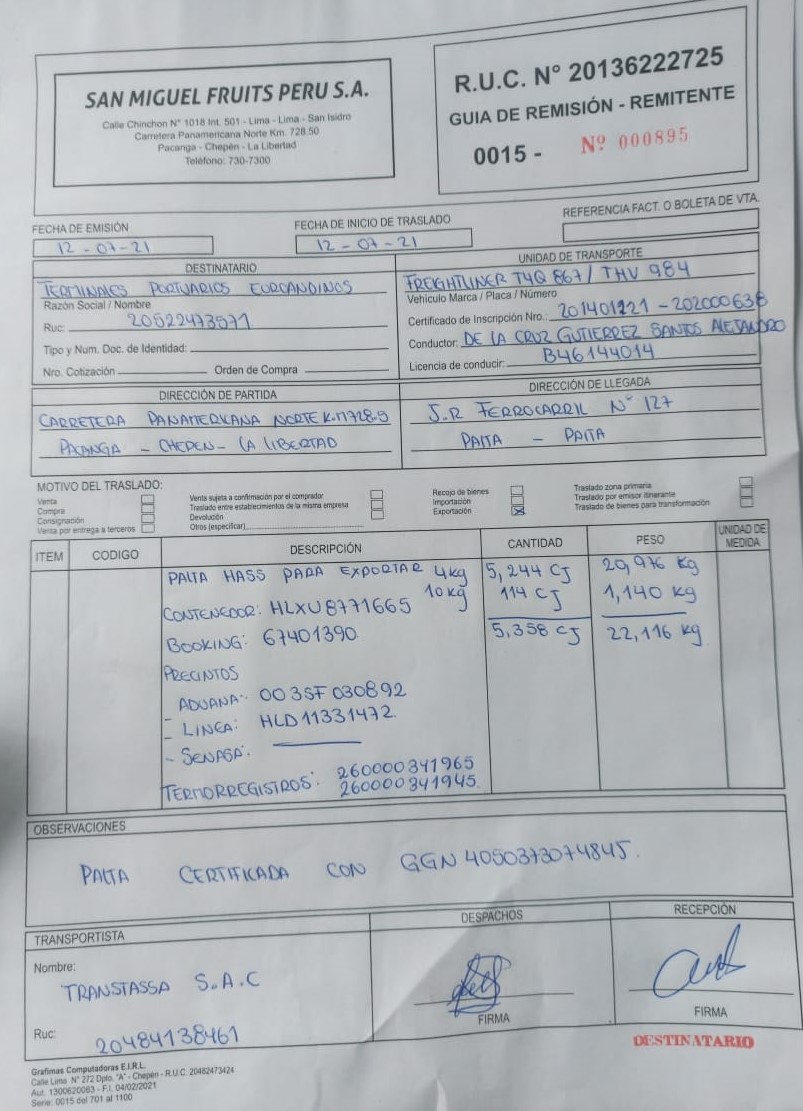 SAN MIGUEL FRUITS PERU S.A.
Calle Chinchon N° 1018 Int. 501 - Lima - Lima - San Isidro
Carretera Panamericana Norte Km. 728.50
Pacanga - Chepén - La Libertad
Teléfono: 730-7300
R.U.C. N° 20136222725
GUIA DE REMISIÓN - REMITENTE
0015 - Nº 000895
FECHA DE EMISIÓN
12 - 07 - 21
FECHA DE INICIO DE TRASLADO
12 - 07 - 21
REFERENCIA FACT. O BOLETA DE VTA.
DESTINATARIO
TERMINALES PORTUARIOS EUROANDINOS
Razón Social / Nombre
Ruc: 20522473571
Tipo y Num. Doc. de Identidad:
Nro. Cotización Orden de Compra
UNIDAD DE TRANSPORTE
FREIGHTLINER T4Q 867 / THV 984
Vehiculo Marca / Placa / Número
Certificado de Inscripción Nro.: 201401221 - 202000638
Conductor: DE LA CRUZ GUTIERREZ SANTOS ALEJANDRO
Licencia de conducir: B46144014
DIRECCIÓN DE PARTIDA
CARRETERA PANAMERICANA NORTE K.M728.5
PACANGA - CHEPEN - LA LIBERTAD
DIRECCIÓN DE LLEGADA
J.R FERROCARRIL Nº 127
PAITA - PAITA
MOTIVO DEL TRASLADO:
Venta
Compra
Consignación
Venta por entrega a terceros
Venta sujeta a confirmación por el comprador
Traslado entre establecimientos de la misma empresa
Devolución
Otros (especificar)
Recojo de bienes
Importación
Exportación X
Traslado zona primaria
Traslado por emisor itinerante
Traslado de bienes para transformación
ITEM CODIGO DESCRIPCIÓN CANTIDAD PESO UNIDAD DE MEDIDA
PALTA HASS PARA EXPORTAR 4kg 5,244 CJ 20,976 kg
10kg 114 CJ 1,140 kg
CONTENEDOR: HLXU8771665
BOOKING: 67401390 5,358 CJ 22,116 kg
PRECINTOS
ADUANA: 003SF030892
- LINEA: HLD11331472
- SENASA:
TERMORREGISTROS: 260000341965
260000341945.
OBSERVACIONES
PALTA CERTIFICADA CON GGN 4050373074845.
TRANSPORTISTA
Nombre:
TRANSTASSA S.A.C
Ruc: 20484138461
DESPACHOS
FIRMA
RECEPCIÓN
FIRMA
DESTINATARIO
Grafimas Computadoras E.I.R.L.
Calle Lima N° 272 Dpto. "A" - Chepén - R.U.C. 20482473424
Aut. 1300620063 - F.I. 04/02/2021
Serie: 0015 del 701 al 1100